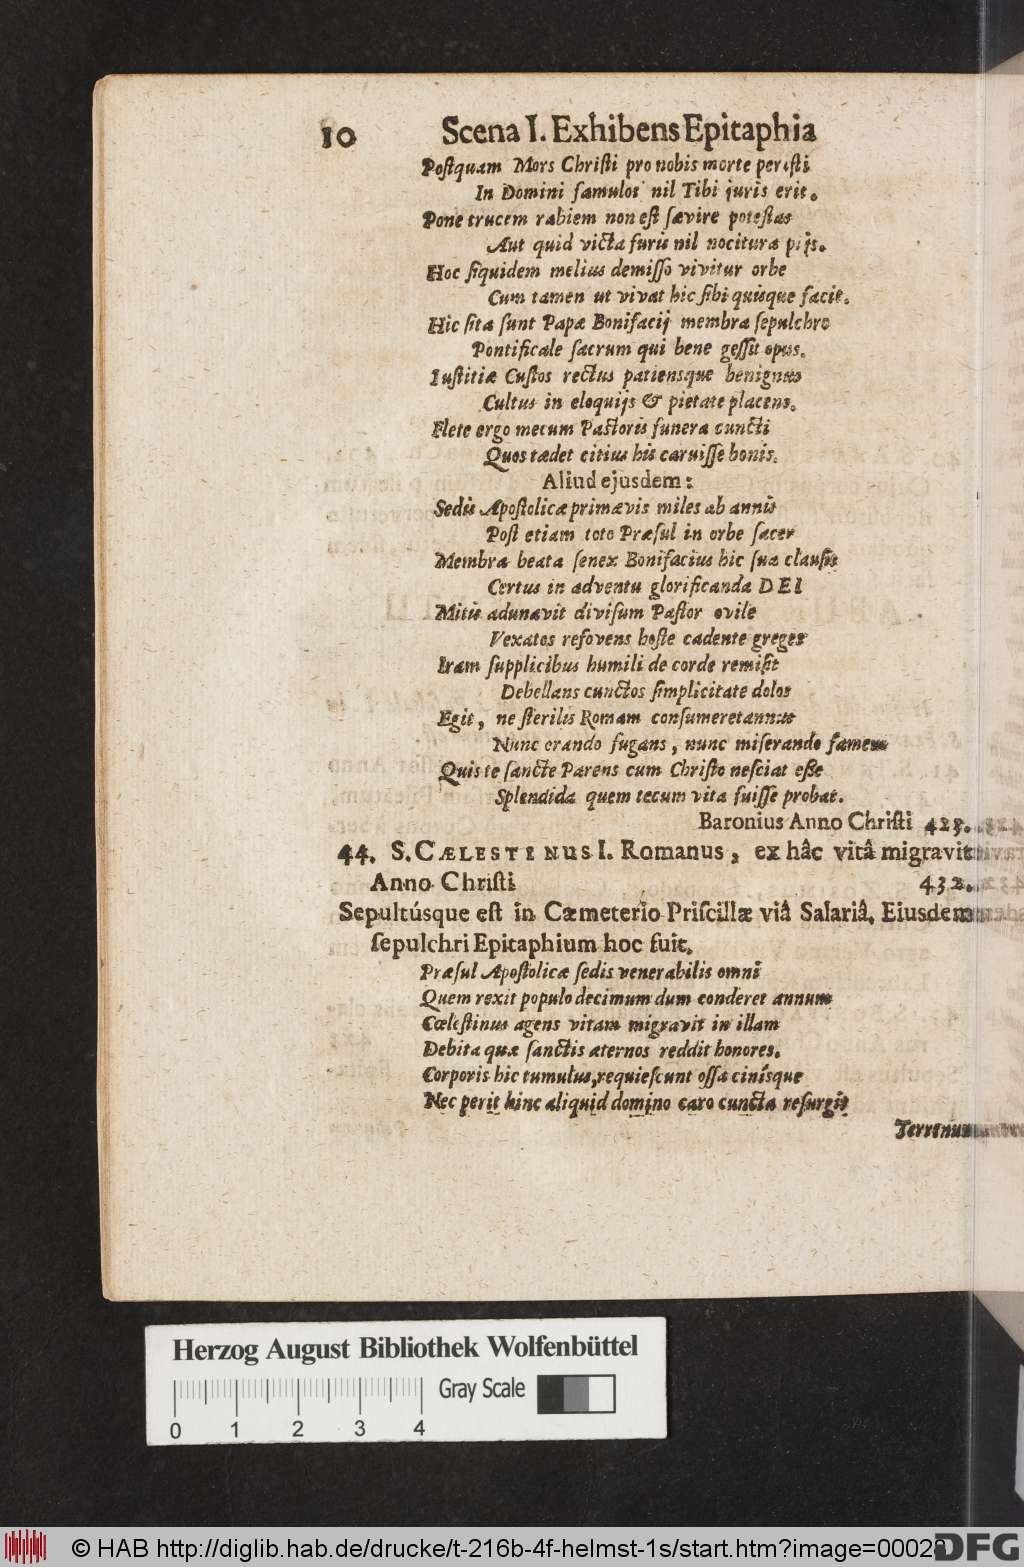 10 Scena I. Exhibens Epitaphia
Postquam Mors Christi pro nobis morte peristi
In Domini famulos nil Tibi juris erit.
Pone trucem rabiem non est sævire potestas
Aut quid victa furis nil nocitura pijs.
Hoc siquidem melius demisso vivitur orbe
Cum tamen ut vivat hic sibi quisque facit.
Hic sita sunt Papæ Bonifacij membra sepulchro
Pontificale sacrum qui bene gessit opus.
Iustitiæ Custos rectus patiensque benignus
Cultus in eloquijs & pietate placens.
Flete ergo mecum Pastoris funera cuncti
Quos tædet citius his caruisse bonis.
Aliud ejusdem:
Sedis Apostolicæ primævis miles ab annis
Post etiam toto Præsul in orbe sacer
Membra beata senex Bonifacius hic sua clausit
Certus in adventu glorificanda DEI
Mitis adunavit divisum Pastor ovile
Vexatos refovens hoste cadente greges
Iram supplicibus humili de corde remisit
Debellans cunctos simplicitate dolos
Egit, ne sterilis Romam consumeret annus
Nunc orando fugans, nunc miserando famem
Quis te sancte Parens cum Christo nesciat esse
Splendida quem tecum vita fuisse probat.
Baronius Anno Christi 423.
44. S. CÆLESTINUS I. Romanus, ex hâc vitâ migravit
Anno Christi 432.
Sepultúsque est in Cæmeterio Priscillæ viâ Salariâ, Eiusdem
sepulchri Epitaphium hoc fuit.
Præsul Apostolicæ sedis venerabilis omni
Quem rexit populo decimum dum conderet annum
Cœlestinus agens vitam migravit in illam
Debita quæ sanctis æternos reddit honores.
Corporis hic tumulus, requiescunt ossa cinísque
Nec perit hinc aliquid domino caro cuncta resurgit
Terrenum
Herzog August Bibliothek Wolfenbüttel
Gray Scale
0 1 2 3 4
© HAB http://diglib.hab.de/drucke/t-216b-4f-helmst-1s/start.htm?image=00028
DFG